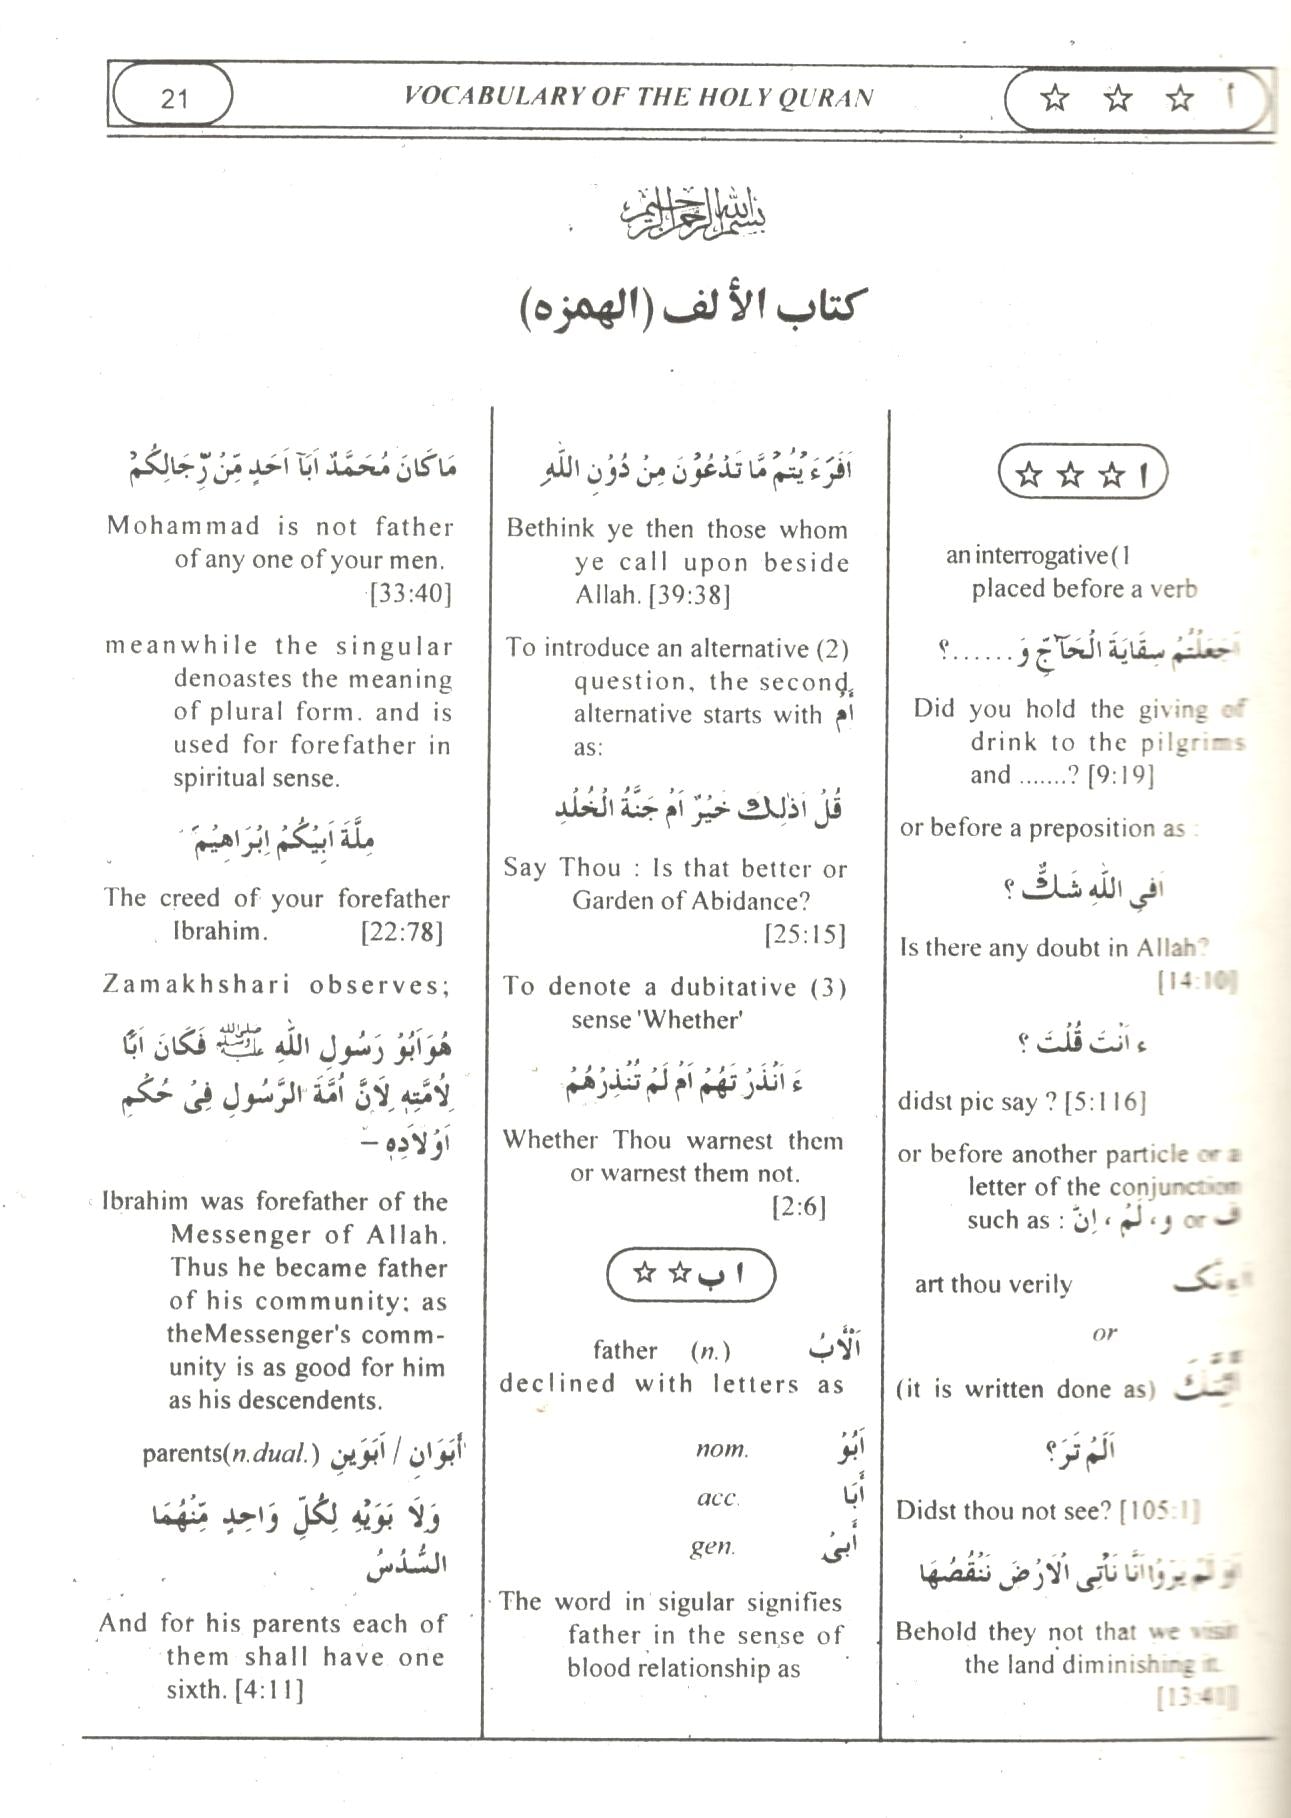 21
VOCABULARY OF THE HOLY QURAN
☆ ☆ ☆ ا
بسم الله الرحمن الرحيم
كتاب الألف (الهمزه)
ا ☆ ☆ ☆
an interrogative(1
placed before a verb
اَجَعَلْتُمْ سِقَايَةَ الْحَآجِّ وَ......؟
Did you hold the giving of
drink to the pilgrims
and .......? [9:19]
or before a preposition as :
اَفِي اللّٰهِ شَكٌّ ؟
Is there any doubt in Allah?
[14:10]
ءَ اَنْتَ قُلْتَ ؟
didst pic say ? [5:116]
or before another particle or a
letter of the conjunction
such as : وَ، لَمْ ، اِنَّ or فَ
art thou verily
or
(it is written done as)
اَلَمْ تَرَ؟
Didst thou not see? [105:1]
اَوَ لَمْ يَرَوْا اَنَّا نَأْتِي الْاَرْضَ نَنْقُصُهَا
Behold they not that we visit
the land diminishing it.
[13:41]
اَفَرَءَيْتُمْ مَّا تَدْعُوْنَ مِنْ دُوْنِ اللّٰهِ
Bethink ye then those whom
ye call upon beside
Allah. [39:38]
To introduce an alternative (2)
question, the second,
alternative starts with أَمْ
as:
قُلْ اَذٰلِكَ خَيْرٌ اَمْ جَنَّةُ الْخُلْدِ
Say Thou : Is that better or
Garden of Abidance?
[25:15]
To denote a dubitative (3)
sense 'Whether'
ءَ اَنْذَرْتَهُمْ اَمْ لَمْ تُنْذِرْهُمْ
Whether Thou warnest them
or warnest them not.
[2:6]
ا ب ☆ ☆
father (n.) اَلْأَبُ
declined with letters as
nom. اَبُوْ
acc. أَبَا
gen. أَبِىْ
The word in sigular signifies
father in the sense of
blood relationship as
مَا كَانَ مُحَمَّدٌ اَبَآ اَحَدٍ مِّنْ رِّجَالِكُمْ
Mohammad is not father
of any one of your men.
[33:40]
meanwhile the singular
denoastes the meaning
of plural form. and is
used for forefather in
spiritual sense.
مِلَّةَ اَبِيْكُمْ اِبْرَاهِيْمَ
The creed of your forefather
Ibrahim. [22:78]
Zamakhshari observes;
هُوَ اَبُوْ رَسُولِ اللّٰهِ ﷺ فَكَانَ اَبًا
لِاُمَّتِهٖ لِاَنَّ اُمَّةَ الرَّسُولِ فِىْ حُكْمِ
اَوْلَادِهٖ –
Ibrahim was forefather of the
Messenger of Allah.
Thus he became father
of his community; as
theMessenger's comm-
unity is as good for him
as his descendents.
parents(n.dual.) أَبَوَانِ / اَبَوَينِ
وَلَا بَوَيْهِ لِكُلِّ وَاحِدٍ مِّنْهُمَا
السُّدُسُ
And for his parents each of
them shall have one
sixth. [4:11]